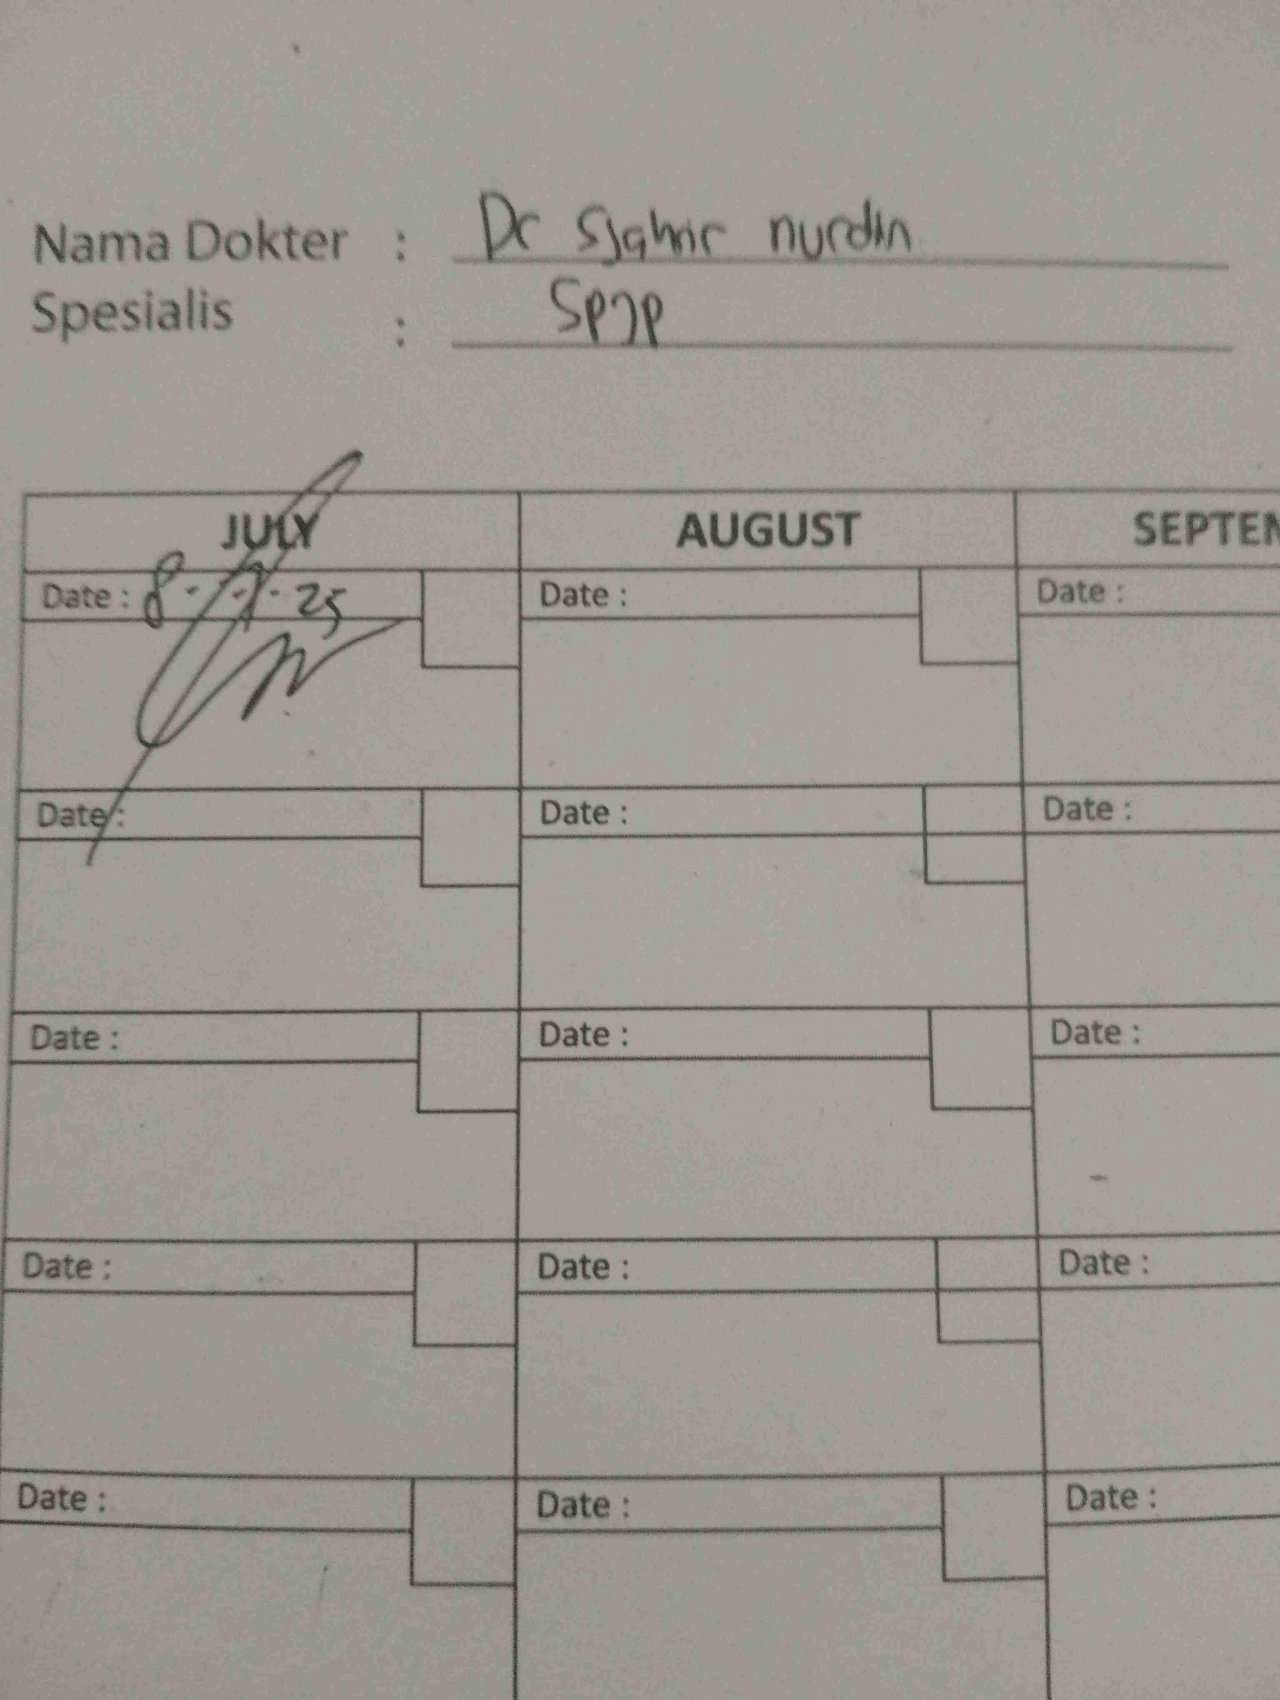 Nama Dokter : Dr Sjahrir nurdin
Spesialis : SpJp
JULY AUGUST SEPTEM
Date : 8 - 7 - 25 Date : Date :
Date : Date : Date :
Date : Date : Date :
Date : Date : Date :
Date : Date : Date :